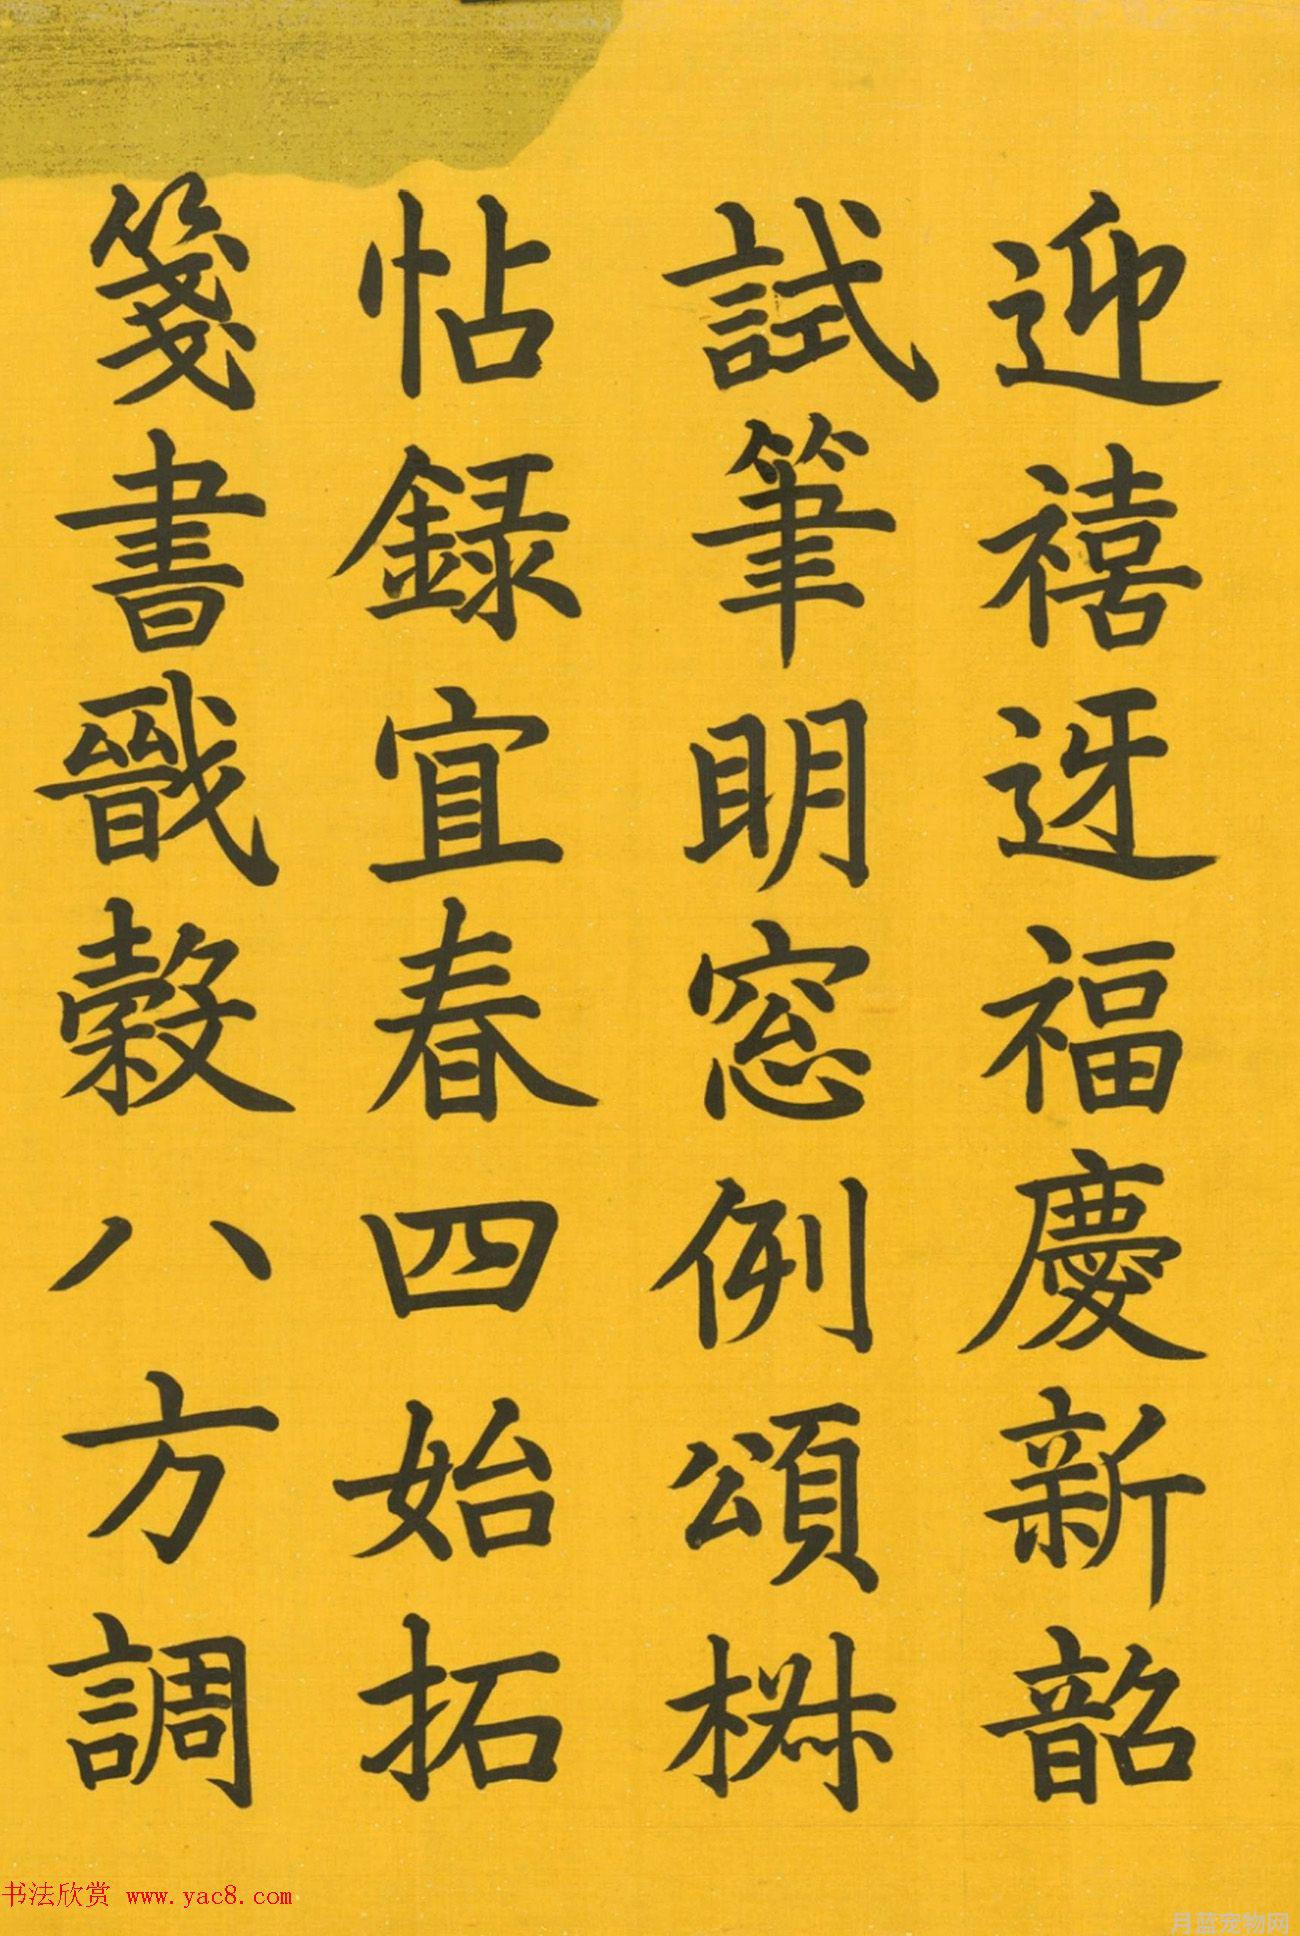 迎禧迓福慶新韶
試筆明窓例頌椒
帖録宜春四始拓
箋書戩穀八方調
书法欣赏 www.yac8.com
月蓝宠物网